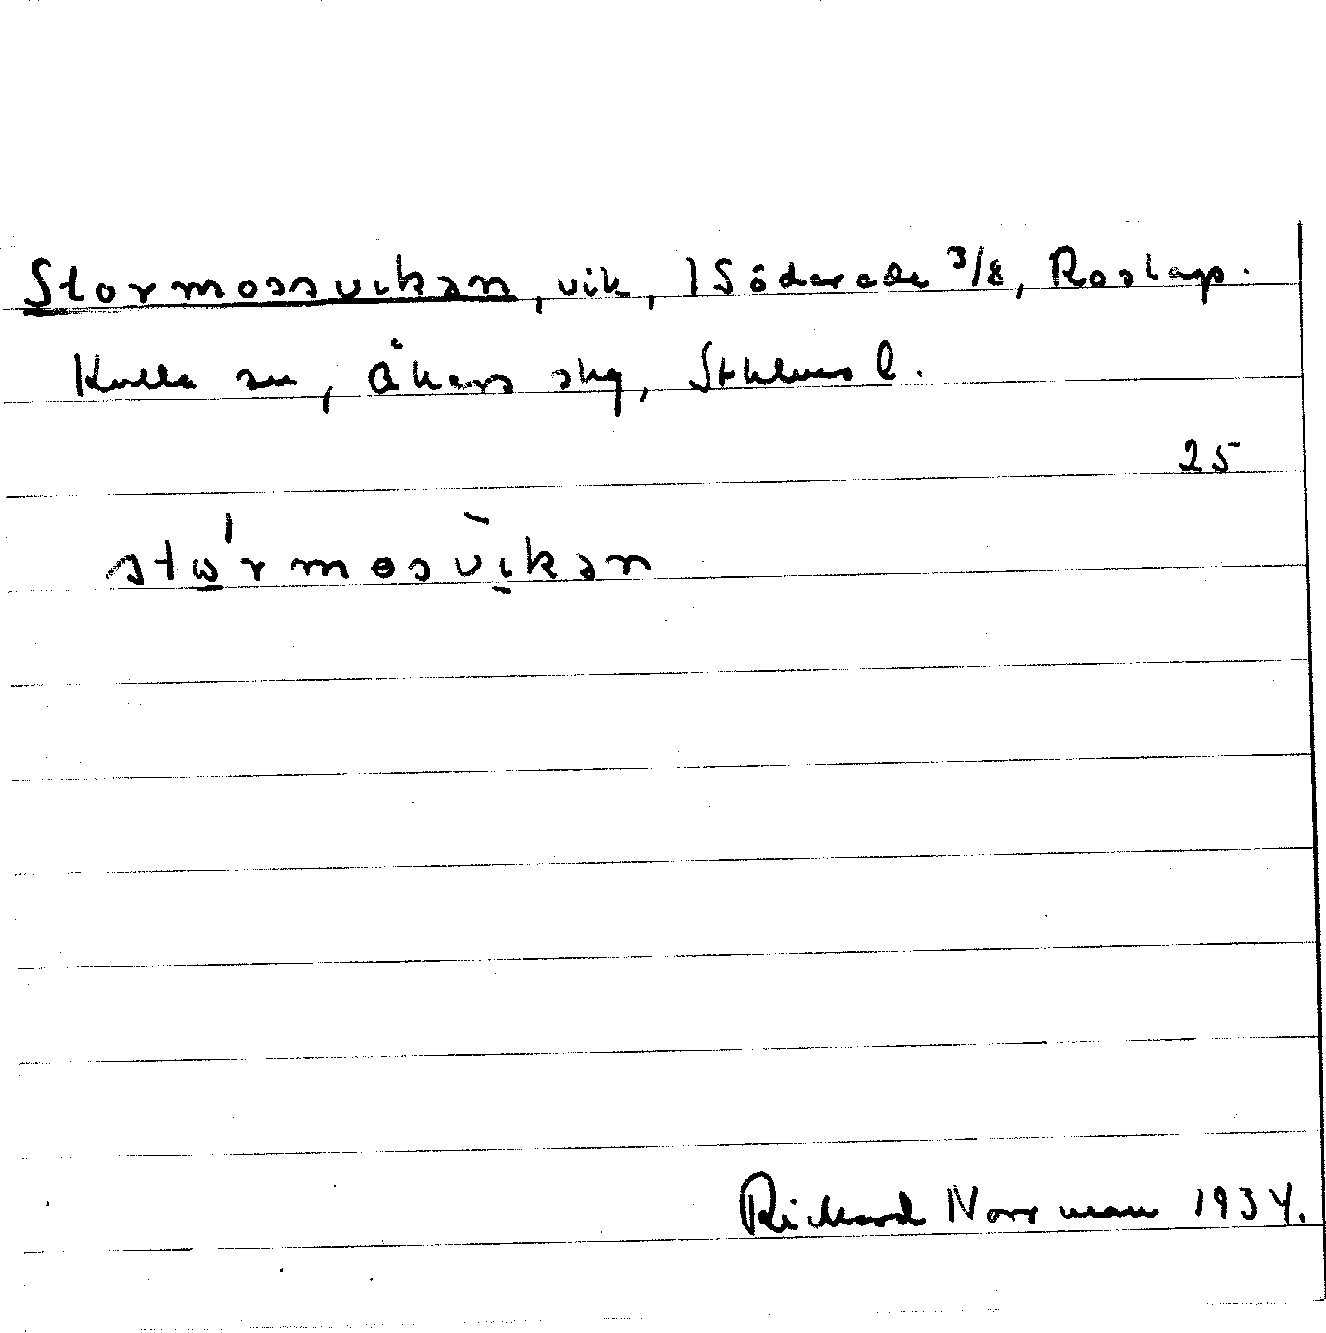 Stormossvikən, vik, 1 Söderede 3/8, Roslags.
Kulla sn, Åkers skg, Sthlms l.
25
stώ̲rmosvìkən
Rickard Norrman 1934.